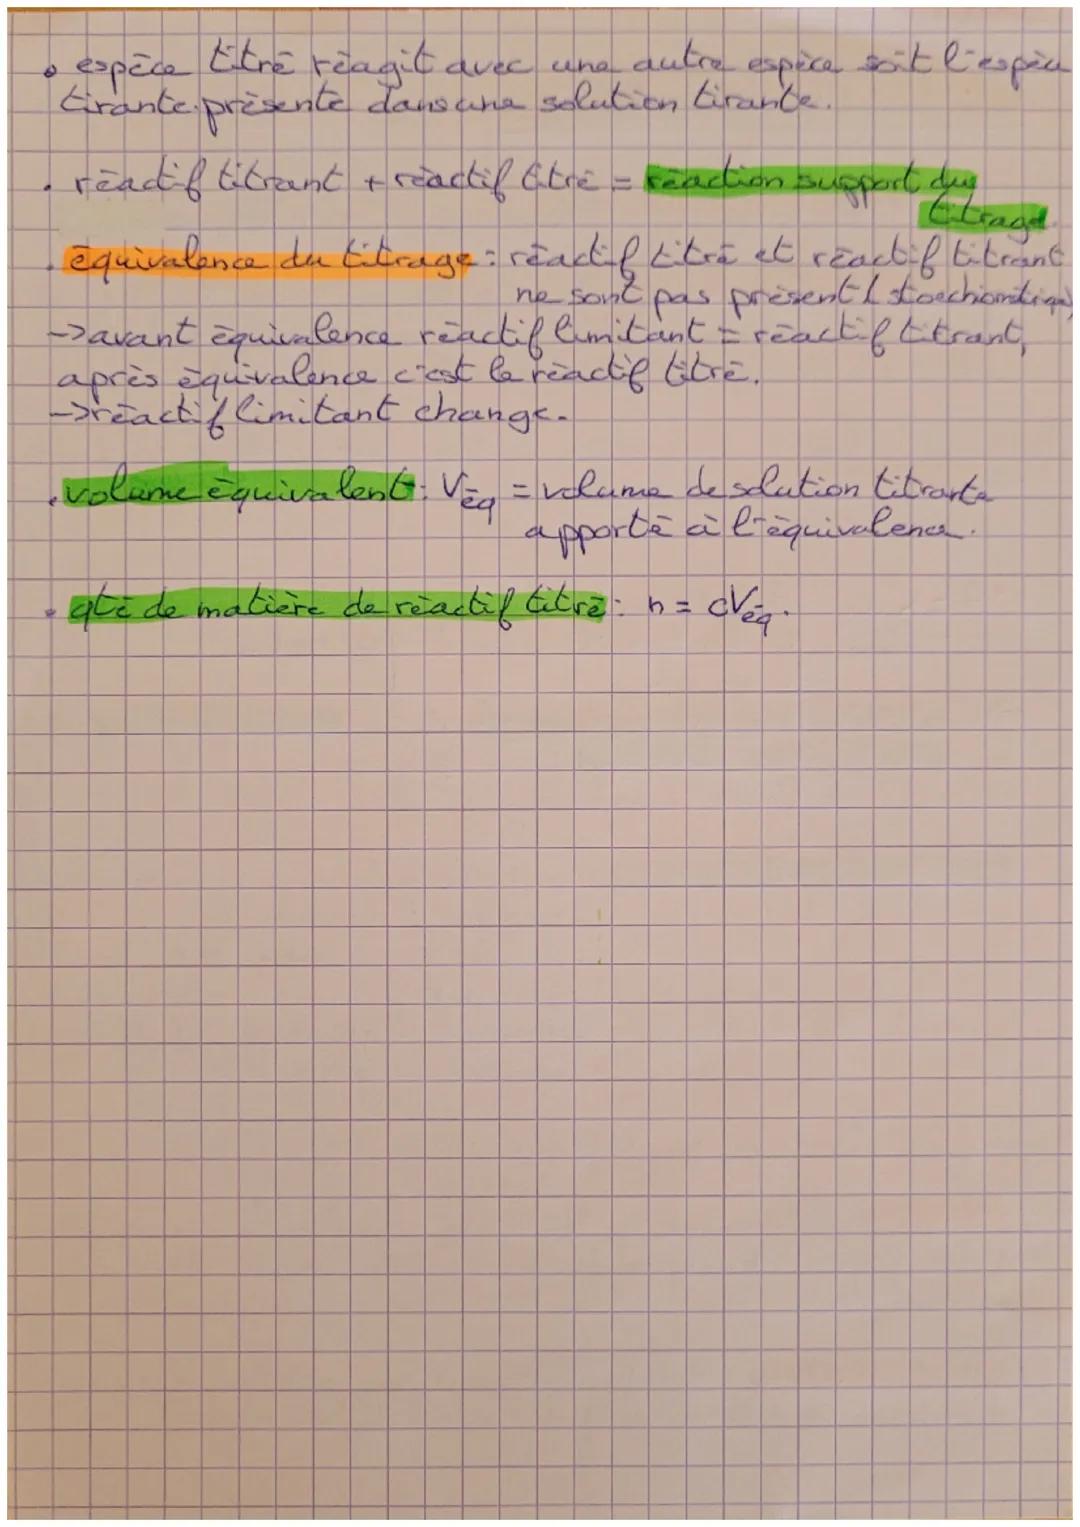 • espèce titré réagit avec une autre espèce soit l'espèce
tirante présente dans une solution tirante.
• réactif titrant + réactif titré = réaction support du
titrage.
• équivalence du titrage : réactif titré et réactif titrant
ne sont pas présent (stoechiométrique)
->avant équivalence réactif limitant = réactif titrant,
après équivalence c'est le réactif titré.
->réactif limitant change.
• volume équivalent : Véq = volume de solution titrante
apporté à l'équivalence.
• qté de matière de réactif titré : n = cVéq.